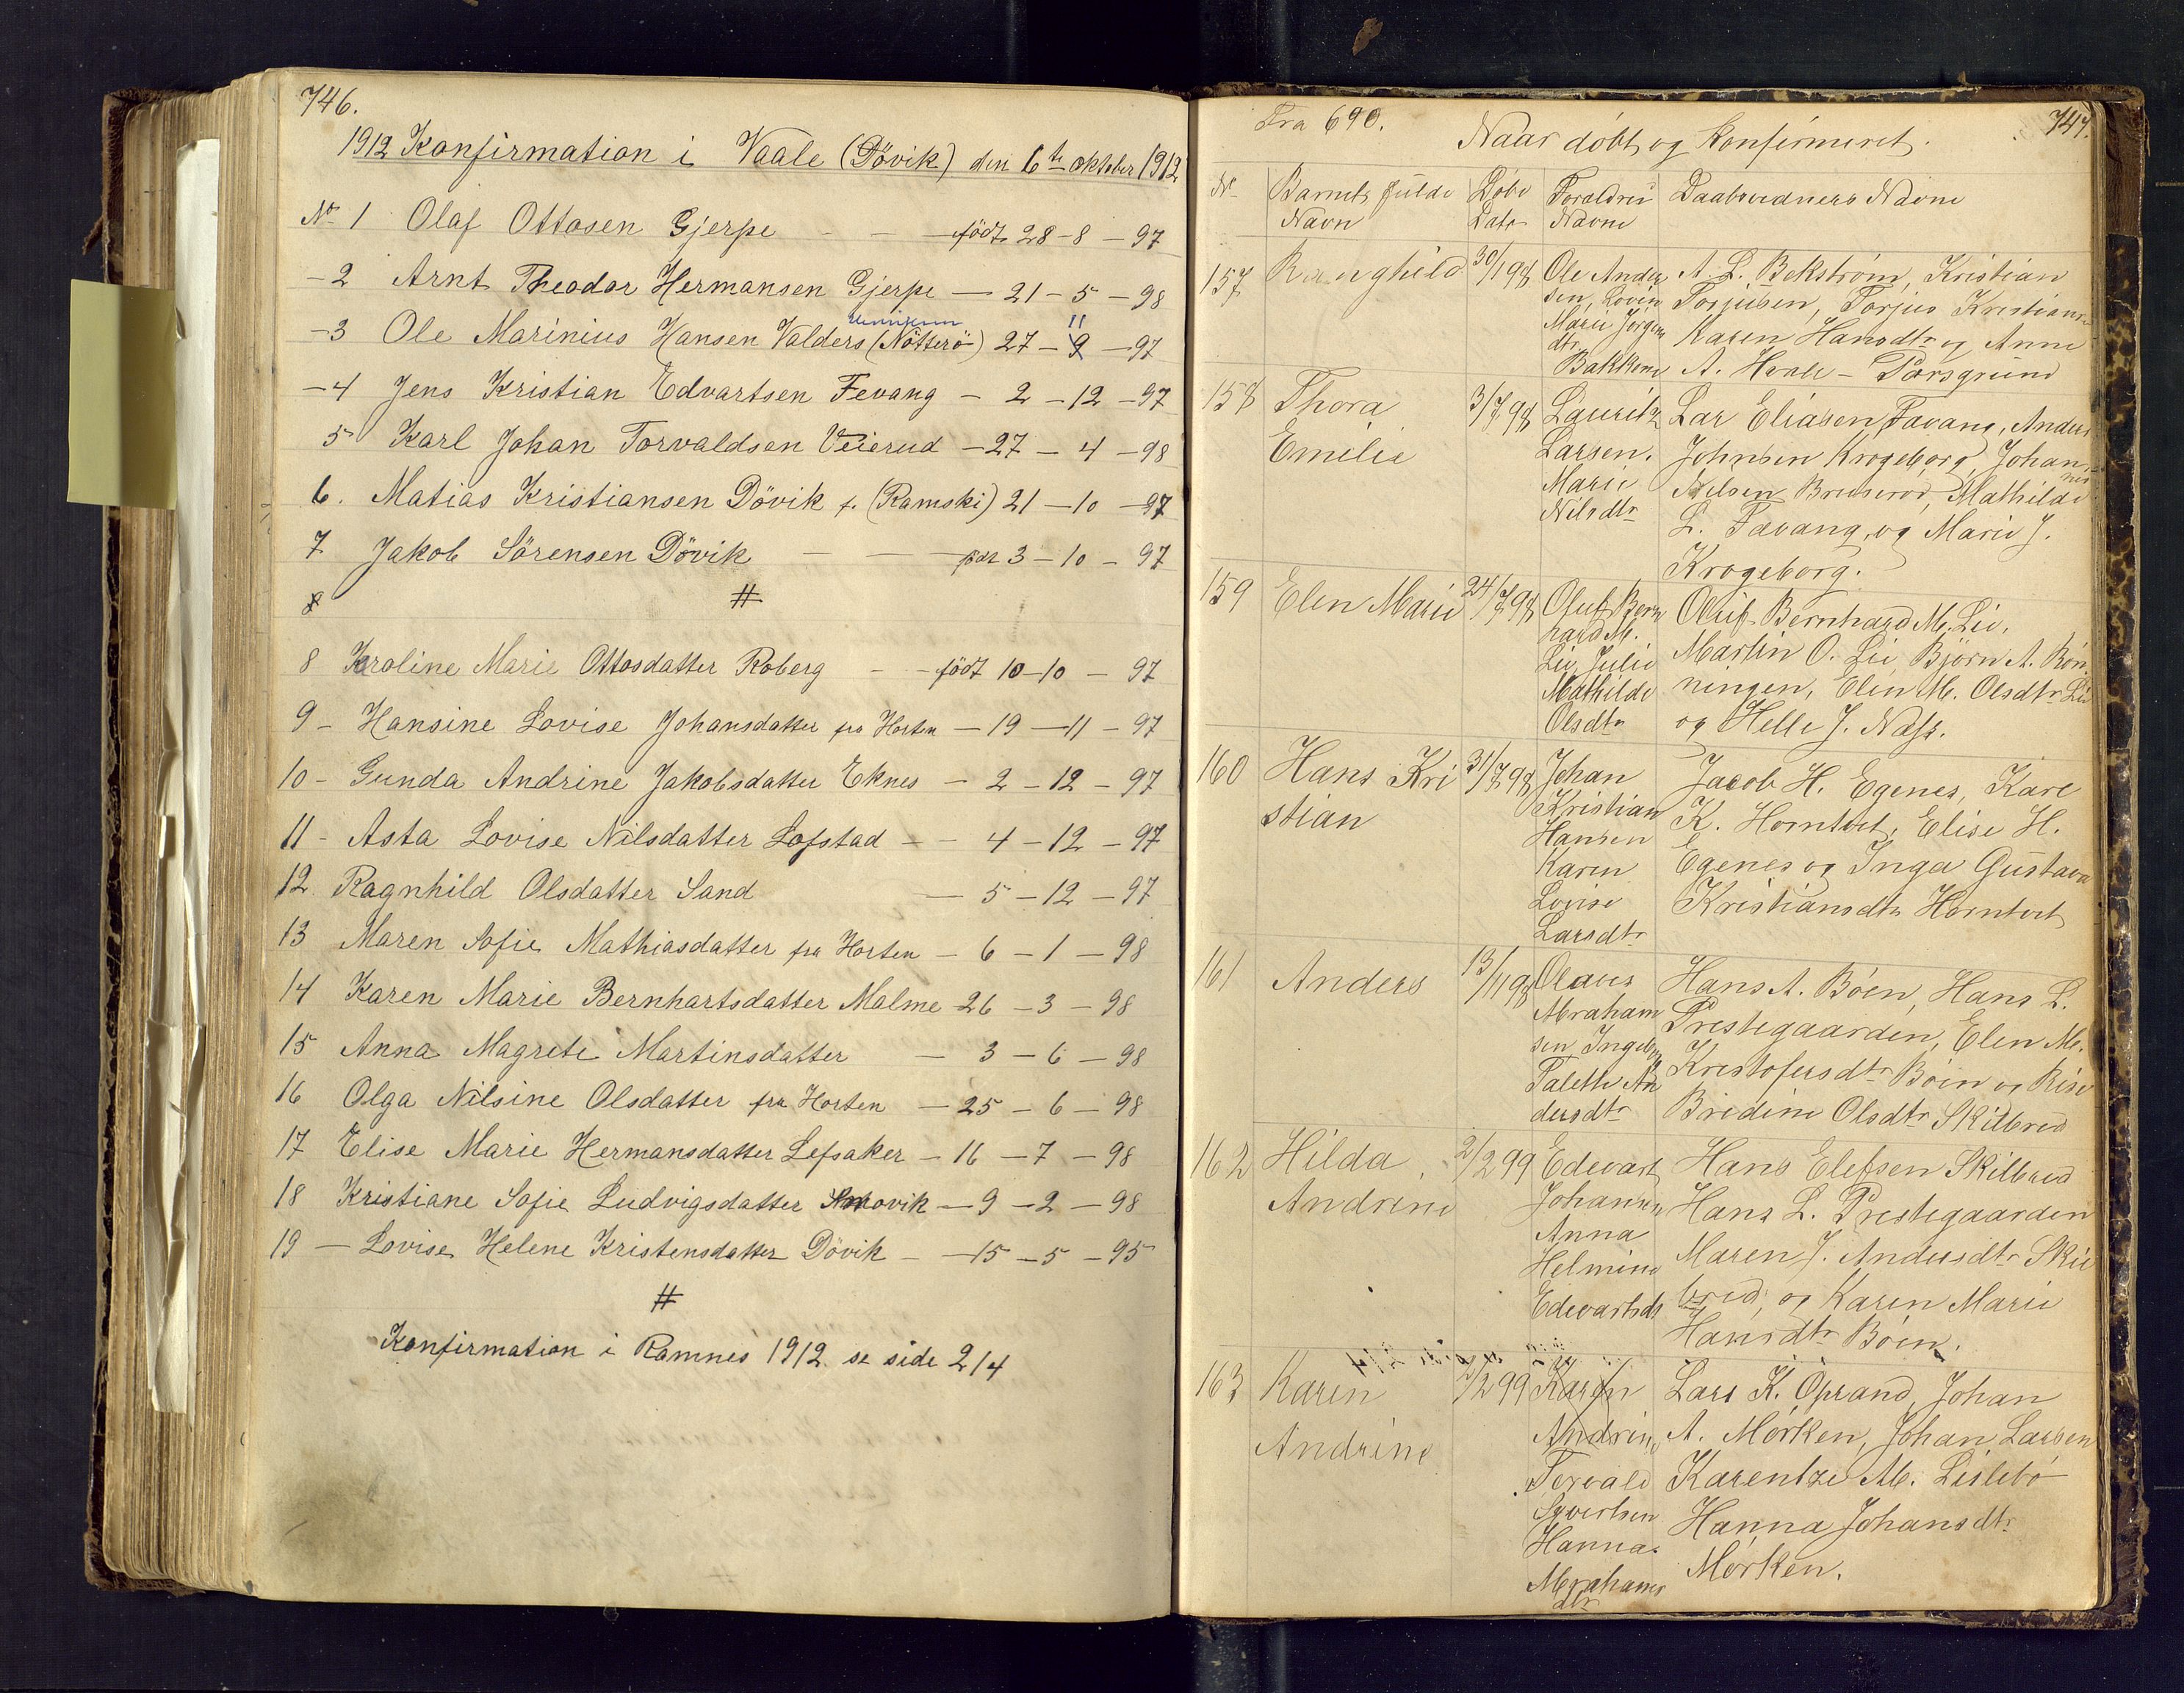 746.
1912 Konfirmation i Vaale (Dövik) den 6te oktober 1912
No 1 Olaf Ottosen Gjerpe - - - födt 28-8-97
-2 Arnt Theodor Hermansen Gjerpe - 21-5-98
11
-3 Ole Marinius Hansen Valders (Nötterö) 27-9-97
-4 Jens Kristian Edvartsen Fevang - 2-12-97
5 Karl Johan Torvaldsen Veierud - 27-4-98
6. Matias Kristiansen Dövik f. (Ramski) 21-10-97
7 Jakob Sörensen Dövik - - - 3-10-97
8 #
8 Karoline Marie Ottosdatter Roberg - - födt 10-10-97
9- Hansine Lovise Johansdatter fra Horten - 19-11-97
10- Gunda Andrine Jakobsdatter Eknes - 2-12-97
11- Asta Lovise Nilsdatter Lofstad - - 4-12-97
12 Ragnhild Olsdatter Sand - 5-12-97
13 Maren Sofie Mathiasdatter fra Horten - 6-1-98
14 Karen Marie Bernhartsdatter Malme 26-3-98
15 Anna Magrete Martinsdatter - 3-6-98
16 Olga Nilsine Olsdatter fra Horten - 25-6-98
17 Elise Marie Hermansdatter Lefsaker - 16-7-98
18 Kristiane Sofie Ludvigsdatter - 9-2-98
19 - Lovise Helene Kristensdatter Dövik - - 15-5-95
#
Konfirmation i Ramnes 1912 se side 214
Fra 690.
747.
Naar döbt og Konfirmeret.
No
Barnets fulde
Navn
Döbe
Dato
Foreldres
Navne
Daabsvidners Navne
157
Ranghild
30/1 98
Ole Ander
sen, Lovin
Marie Jörgen
dtr
Bakkene
A. L. Bekström, Kristian
Torjusen, Torjus Kristians
Karen Hansdtr og Anne
A. Hvale - Porsgrund
158
Thora
Emilie
3/7 98
Lauritz
Larsen.
Marie
Nilsdtr
Lar Eliasen Favang, Anders
Johnsen Krogeborg, Johan
nes
Nilsen Bruserod, Mathilde
L. Favang, og Marie J.
Krogeborg.
159
Elen Marie
24/7 98
Oluf Bern
hard M.
Lie, Julie
Mathilde
Olsdtr
Oluf Bernhard M. Lie,
Martin O. Lie, Björn A. Rön
ningen, Elen M. Olsdtr Lie
og Helle J. Næss.
160
Hans Kri
stian
31/7 98
Johan
Kristian
Hansen
Karen
Lovise
Larsdtr
Jacob H. Egenes, Karl
K. Horntvet, Elise H.
Egenes og Inga Gustava
Kristiansdtr Horntvet
161
Anders
13/11 98
Olaus
Abraham
sen Ingeb
Talette An
dersdtr
Hans A. Böen, Hans L.
Prestegaarden, Elen M.
Kristofersdtr Böen og Rise
Bredine Olsdtr Skilbred
162
Hilda
Andrine
2/2 99
Edevart
Johannsen
Anna
Helmine
Edevartsdt
Hans Elefsen Skilbred
Hans L. Prestegaarden
Maren J. Andersdtr Skil
bred, og Karen Marie
Hansdtr Böen.
163
Karen
Andrine
/2 99
Karen
Andrine
Torvald
Syvertsen
Hanna
Abrahams
dtr
Lars K. Öprand, Johan
A. Mörken, Johan Larsen
Karentze M. Lislebö
Hanna Johansdtr
Mörken.